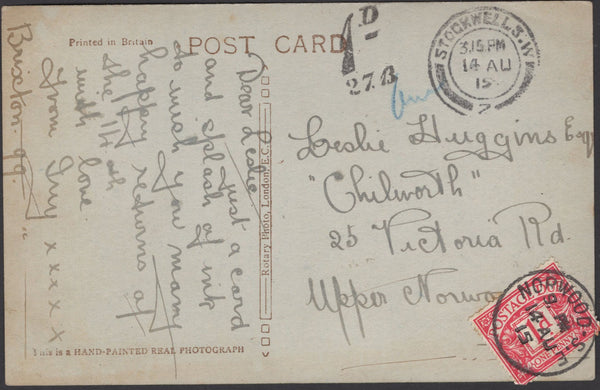 Printed in Britain
POST CARD
1 D
27.B
STOCKWELL S.W
3.15 PM
14 AU
15
2
Dear Leslie
Just a card
and splash of ink
to wish you many
happy returns of
the 14th
with love
From Guy x x x x x
Brixton. 99.
Rotary Photo, London, E.C.
Leslie Huggins Esq
"Chilworth"
25 Victoria Rd.
Upper Norwood
NORWOOD. S.E
14 AU
15
POSTAGE DUE
ONE PENNY
This is a HAND-PAINTED REAL PHOTOGRAPH